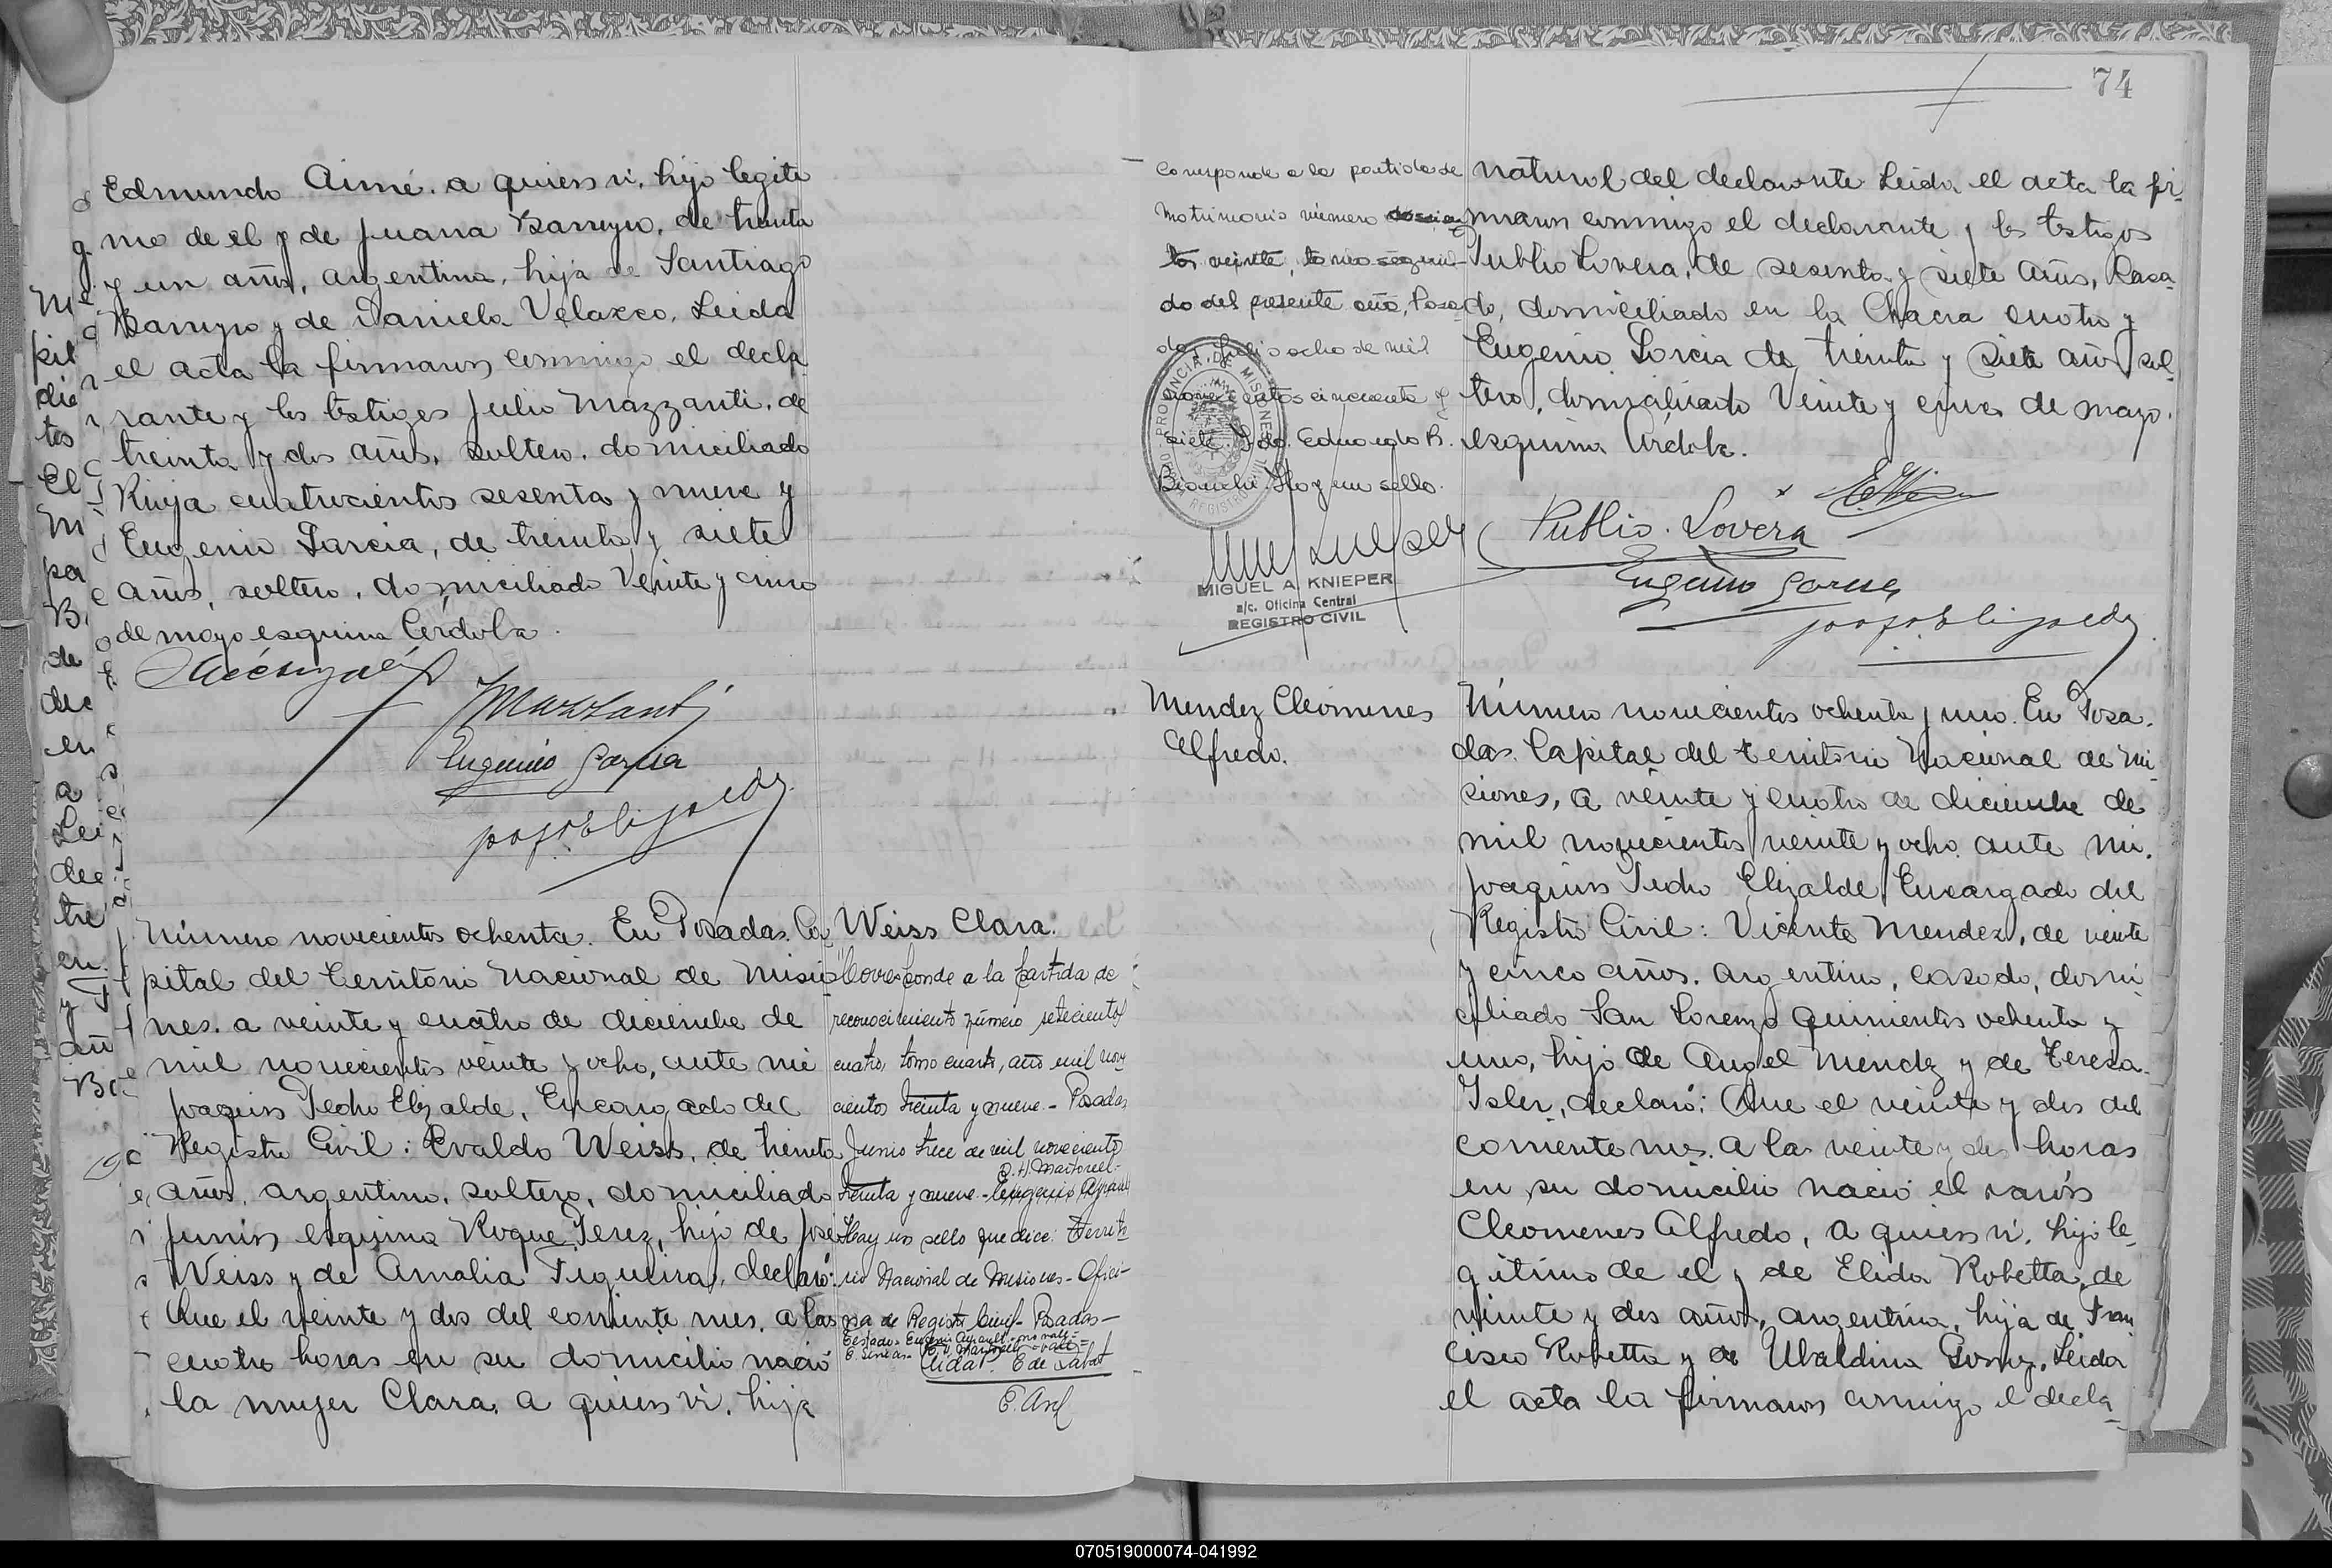 Edmundo Aimé, a quien vi, hijo legiti
mo de el y de Juana Barreyro, de treinta
y un años, argentina, hija de Santiago
Barreyro y de Daniela Velazco. Leida
el acta la firmaron conmigo el decla
rante y los testigos Julio Mazzanti, de
treinta y dos años, soltero, domiciliado
Rioja cuatrocientos sesenta y nueve y
Eugenio Garcia, de treinta y siete
años, soltero, domiciliado Veinte y cinco
de mayo esquina Córdoba.
JMazzanti
Eugenio Garcia
Número novecientos ochenta. En Posadas, Ca
pital del Territorio Nacional de Misio
nes, a veinte y cuatro de diciembre de
mil novecientos veinte y ocho, ante mi
Joaquin Pedro Elizalde, Encargado del
Registro Civil: Evaldo Weiss, de treinta
años, argentino, soltero, domiciliado
Junin esquina Roque Perez, hijo de José
Weiss y de Amalia Figueira, declaró:
Que el veinte y dos del corriente mes, a las
cuatro horas en su domicilio nació
la mujer Clara, a quien vi, hija
Weiss Clara.
"Corresponde a la partida de
reconocimiento número setecientos
cuatro, tomo cuarto, año mil nove
cientos treinta y nueve.- Posadas,
Junio trece de mil novecientos
treinta y nueve.-
Hay un sello que dice: Territo
rio Nacional de Misiones - Ofici-
na de Registro Civil - Posadas -
74
Corresponde a la partida de
Matrimonio número doscien
tos veinte, tomo segun-
do del presente año, Posa
das, Julio ocho de mil
novecientos cincuenta y
siete. Fdo. Eduardo R.
Bianchi Hay un sello.
PROVINCIA DE MISIONES
REGISTRO
MIGUEL A. KNIEPER
a/c. Oficina Central
REGISTRO CIVIL
natural del declarante Leida el acta la fir
maron conmigo el declarante y los testigos
Publio Lovera, de sesenta y siete años, Casa
do, domiciliado en la Chacra cuatro y
Eugenio Garcia de treinta y siete años sol
tero, domiciliado Veinte y cinco de mayo
esquina Córdoba.
Publio. Lovera
Eugenio Garcia
Mendez Cleomenes
Alfredo.
Número novecientos ochenta y uno. En Posa
das, Capital del Territorio Nacional de Mi
siones, a veinte y cuatro de diciembre de
mil novecientos veinte y ocho, ante mi,
Joaquin Pedro Elizalde Encargado del
Registro Civil: Vicente Mendez, de veinte
y cinco años, argentino, casado, domi
ciliado San Lorenzo quinientos ochenta y
uno, hijo de Angel Mendez y de Teresa
Isler, declaró: Que el veinte y dos del
corriente mes, a las veinte y dos horas
en su domicilio nació el varón
Cleomenes Alfredo, a quien vi, hijo le-
gitimo de el y de Elida Robetta, de
veinte y dos años, argentina, hija de Fran
cisco Robetta y de Ubaldina Gomez. Leida
el acta la firmaron conmigo el decla-
070519000074-041992